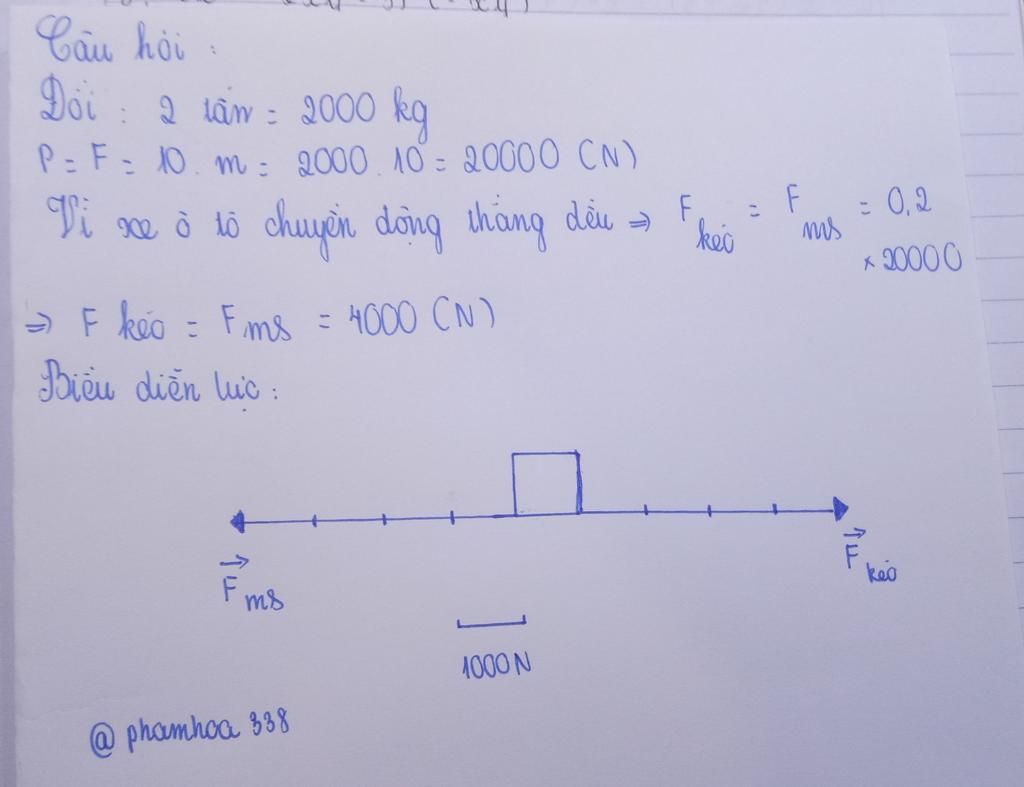 Câu hỏi :
Đổi : 2 tấn = 2000 kg
P = F = 10 . m = 2000 . 10 = 20000 (N)
Vì xe ô tô chuyển động thẳng đều => F kéo = F ms = 0,2
x 20000
=> F kéo = F ms = 4000 (N)
Biểu diễn lực :
F ms
F kéo
1000N
@ phamhoa 338